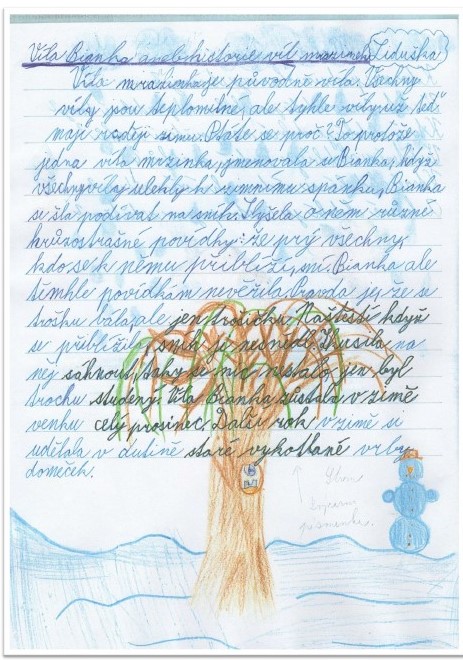 Víla Bianka aneb historie víl mrazinek Liduška
Víla mrazinka je původně víla. Všechny
víly jsou teplomilné, ale tyhle víly už teď
mají raději zimu. Ptáte se proč? To protože
jedna víla mrzinka, jmenovala se Bianka, když
všechny víly ulehly k zimnímu spánku, Bianka
se šla podívat na sníh. Slyšela o něm různé
hrůzostrašné povídky: že prý všechny,
kdo se k němu přiblíží, sní. Bianka ale
těmhle povídkám nevěřila. Pravda je, že se
trošku bála, ale jen trošičku. Naštěstí když
se přiblížila, sníh ji nesnědl. Zkusila na
něj sáhnout, taky se nic nestalo, jen byl
trochu studený. Víla Bianka zůstala v zimě
venku celý prosinec. Další rok v zimě si
udělala v dutině staré vykotlané vrby
domeček.